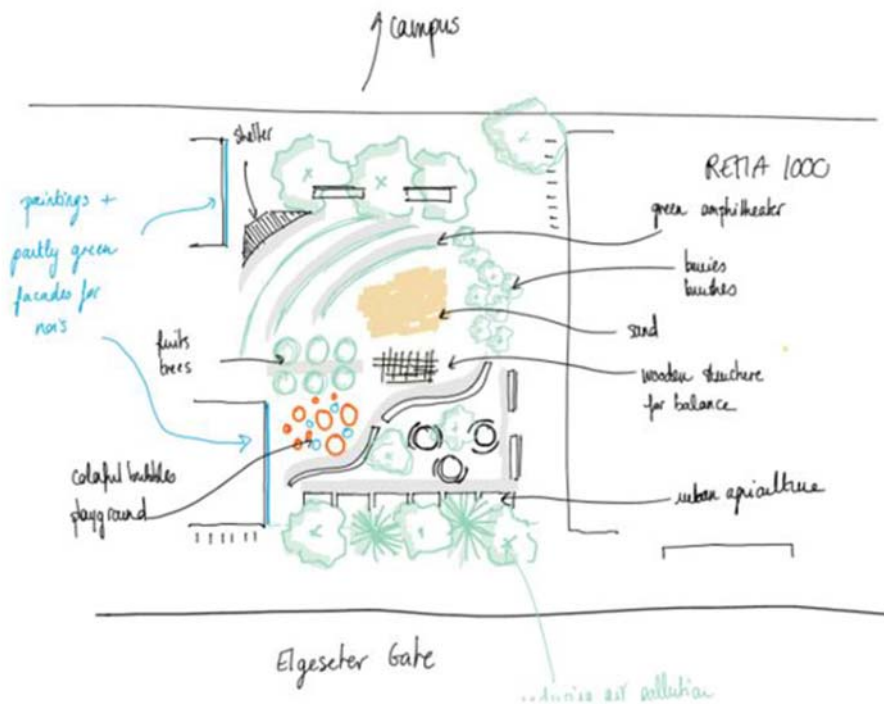 campus
shelter
REMA 1000
paintings +
partly green
facades for
nois
green amphitheater
berries
bushes
sand
fruits
trees
wooden structure
for balance
colorful bubbles
playground
urban agriculture
Elgeseter Gate
reducing air pollution